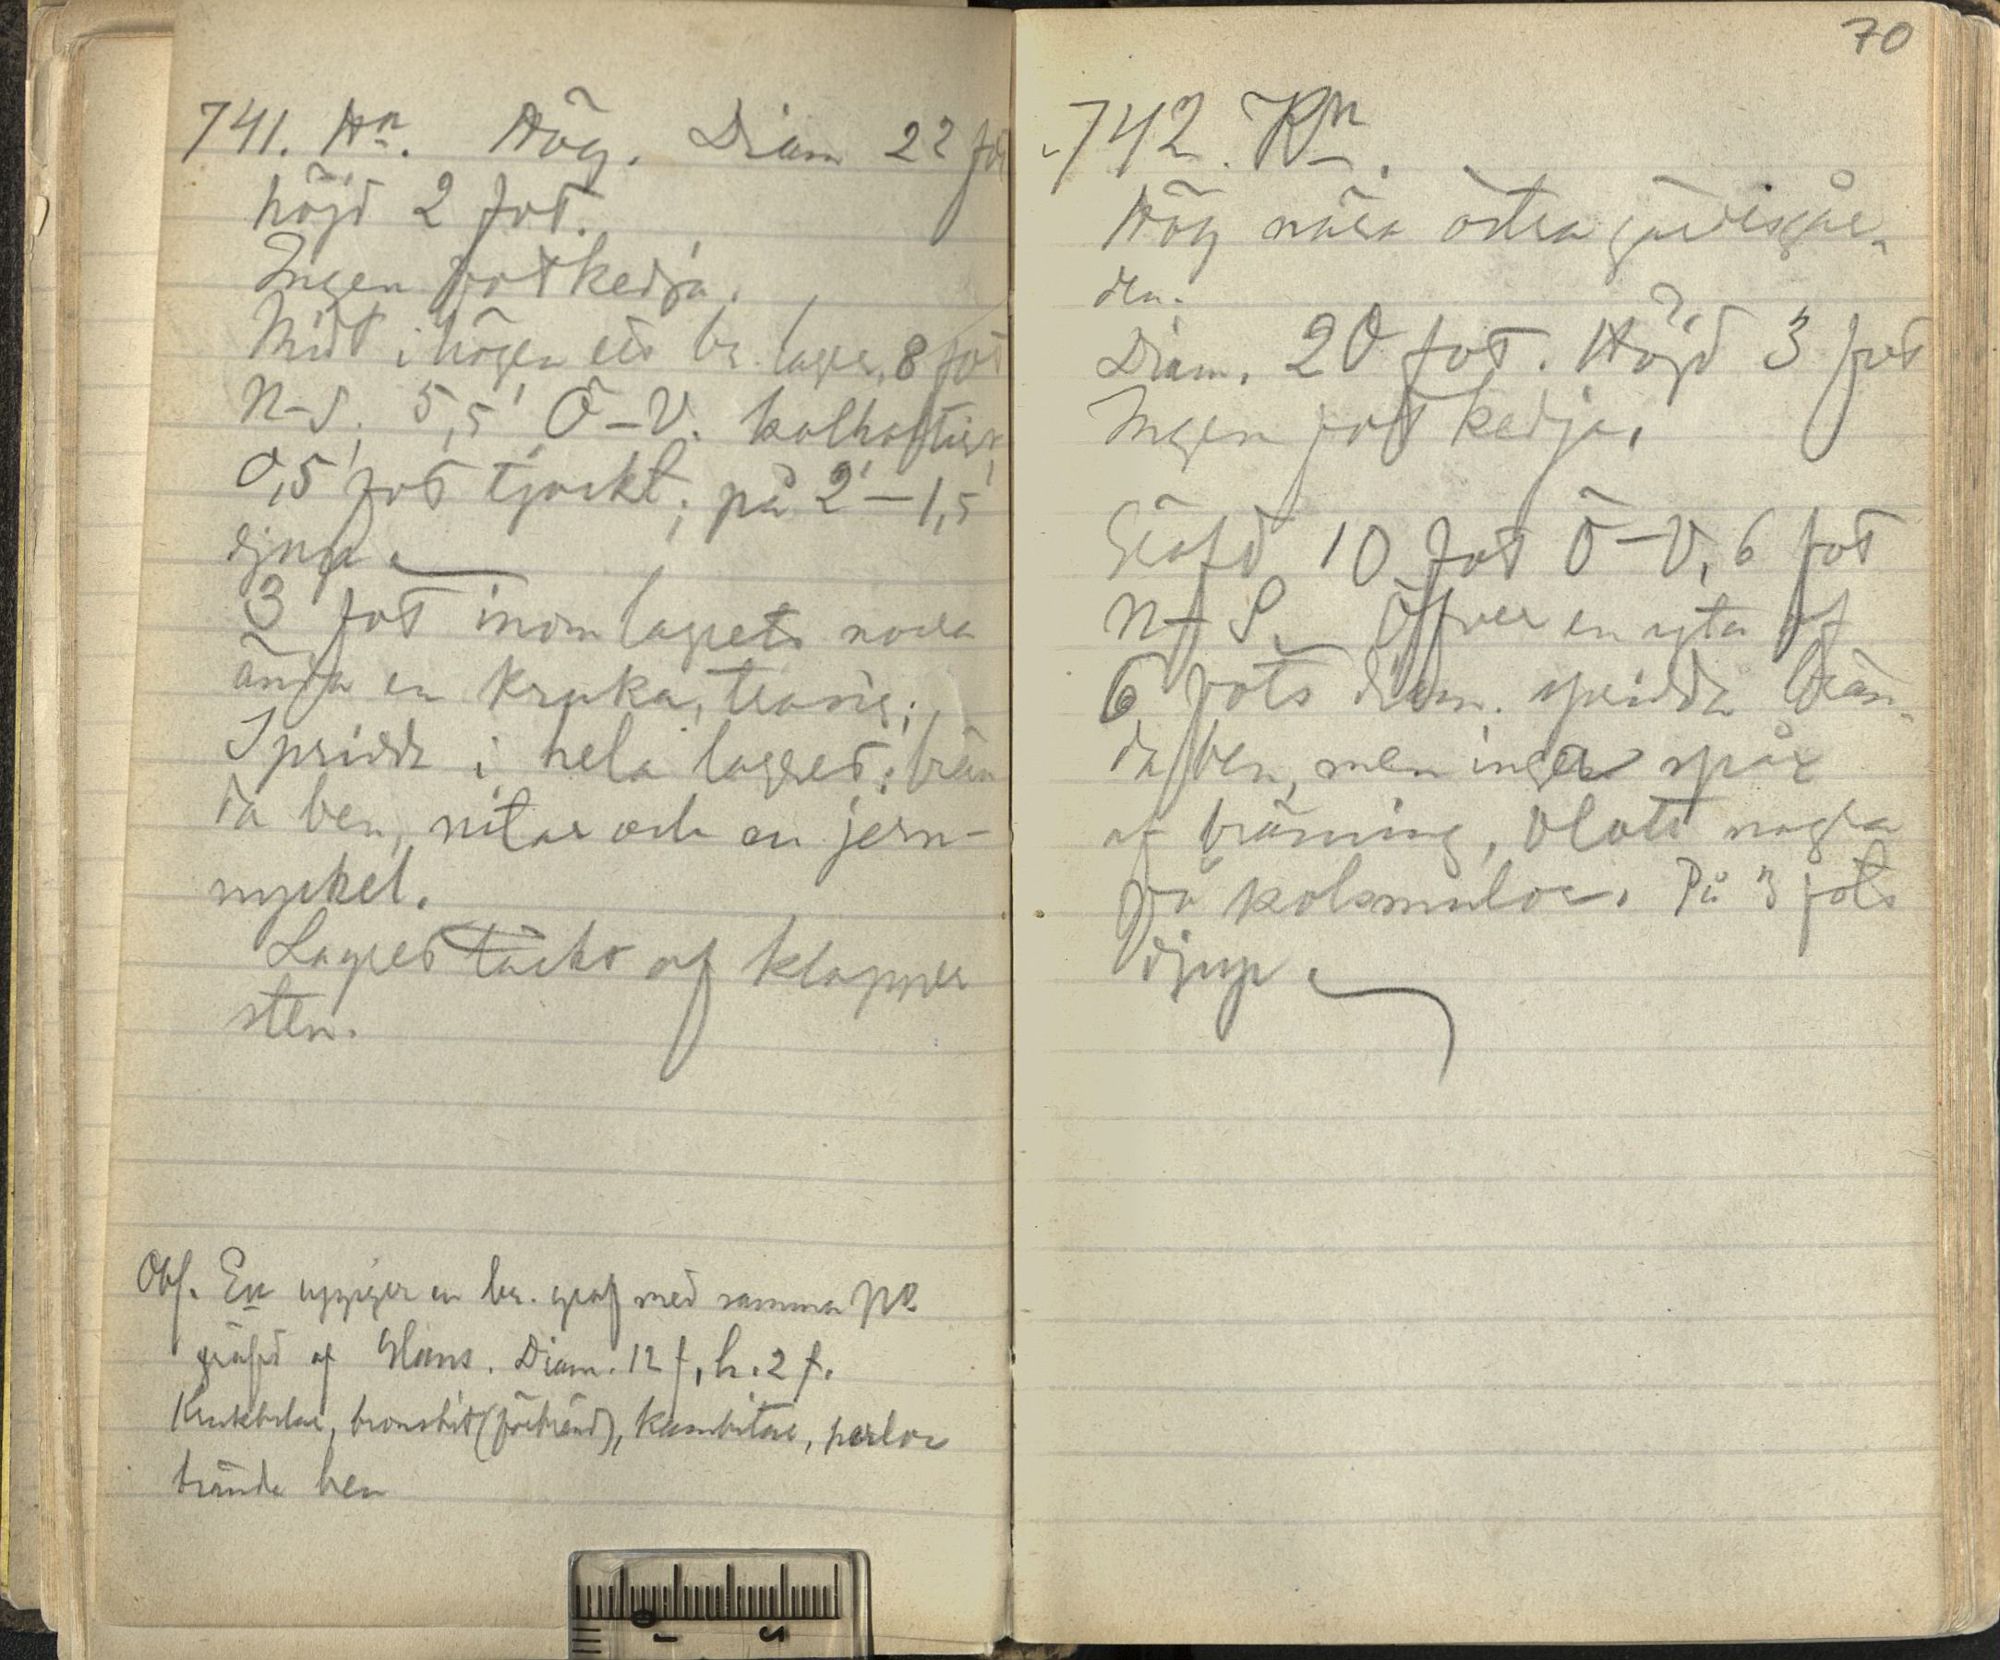 741. Hn. Hög. Diam 22 fot
höjd 2 fot.
Ingen fotkedja.
Midt i högen ett br. lager, 8 fot
N–S, 5,5' Ö–V. kolhaltigt,
0,5 fot tjockt; på 2'–1,5'
djup.
3 fot inom lagrets norra
ända en kruka, trasig;
Spridda i hela lagret: brän
da ben, nitar och en jern-
nyckel.
Lagret täckt af klapper
sten.
Obs. Ek uppger en br. graf med samma No
gräfd af Hans. Diam. 12 f, h. 2 f.
Krukbitar, bronsbit (förbränd), kambitar, perlor
brända ben
70
742. Hn.
Hög nära östra gärdesgår-
den.
Diam. 20 fot. Höjd 3 fot
Ingen fotkedja.
Gräfd 10 fot Ö–V, 6 fot
N–S. Öfver en yta af
6 fots diam. spridda brän-
da ben, men inga spår
af bränning, blott några
få kolsmulor. På 3 fots
djup.
0 1 2